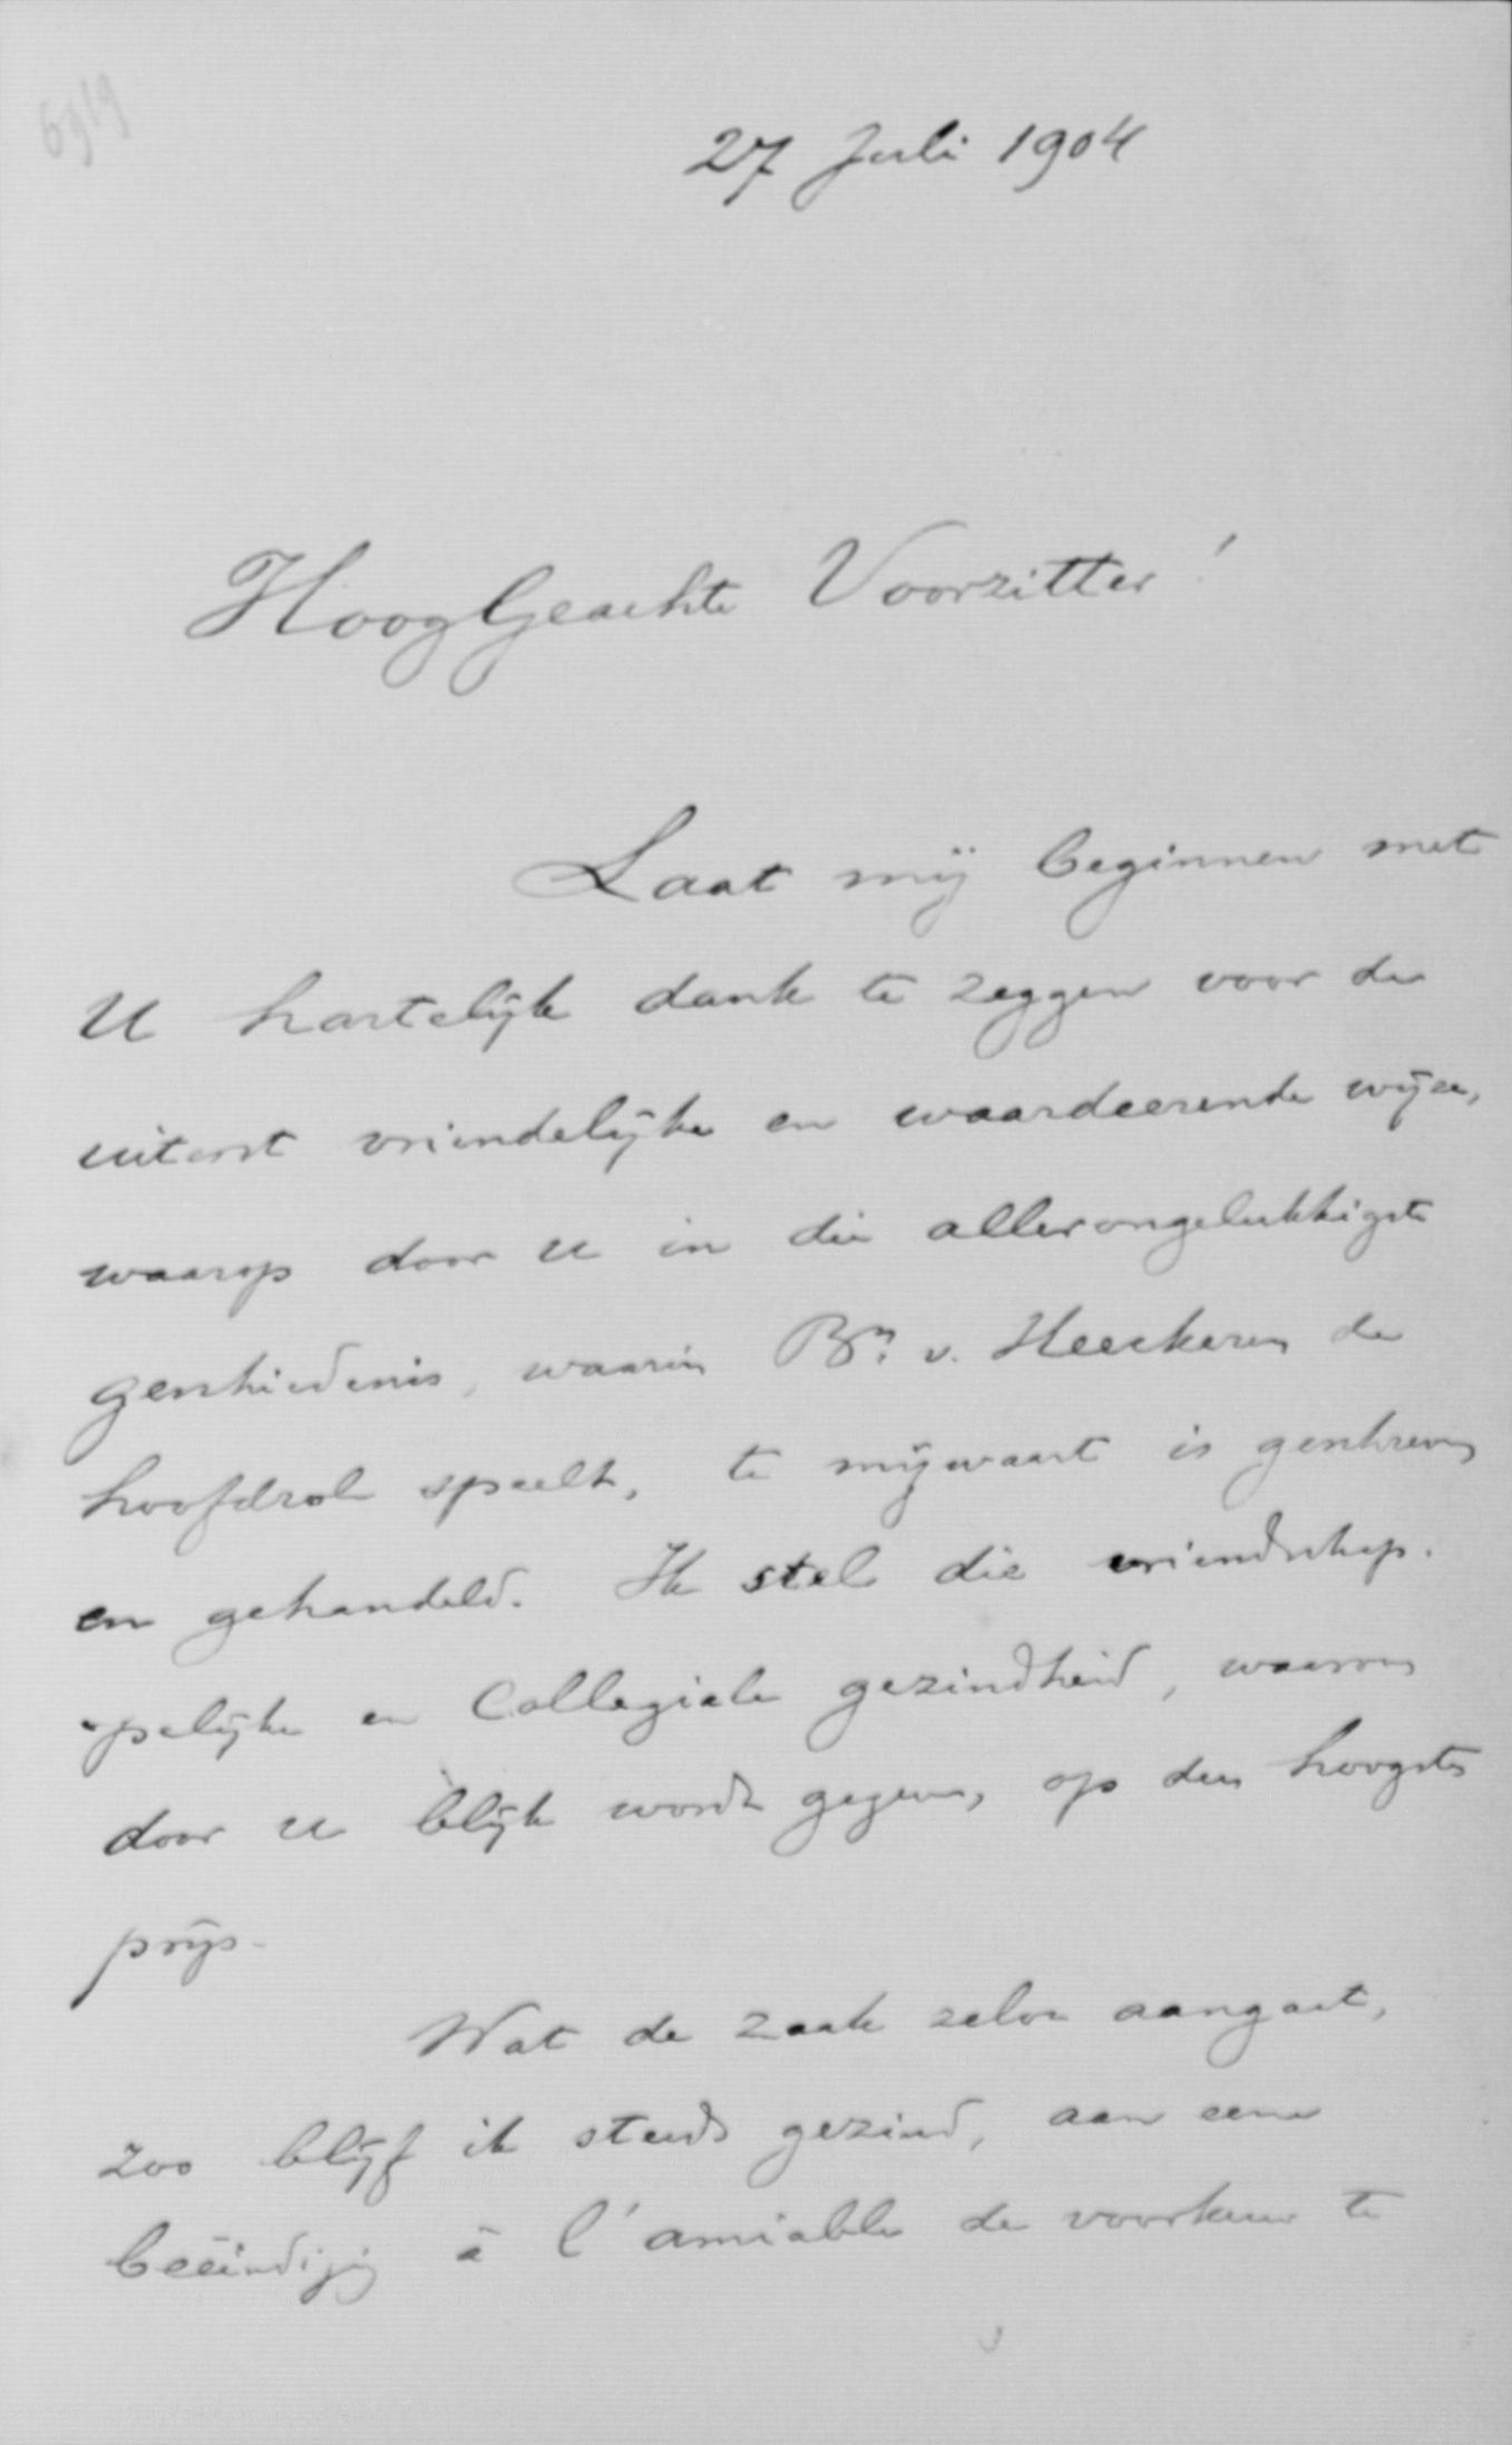 6919
27 Juli 1904
HoogGeachte Voorzitter!
Laat mij beginnen met
U hartelijk dank te zeggen voor de
uiterst vriendelijke en waardeerende wijze,
waarop door U in die allerongelukkigste
geschiedenis, waarin Bn. v. Heeckeren de
hoofdrol speelt, te mijwaart is geschreven
en gehandeld. Ik stel die vriendschap.
-pelijke en Collegiale gezindheid, waarvan
door U blijk wordt gegeven, op den hoogsten
prijs.
Wat de zaak zelve aangaat,
zoo blijf ik steeds gezind, aan eene
beëindiging à l'amiable de voorkeur te